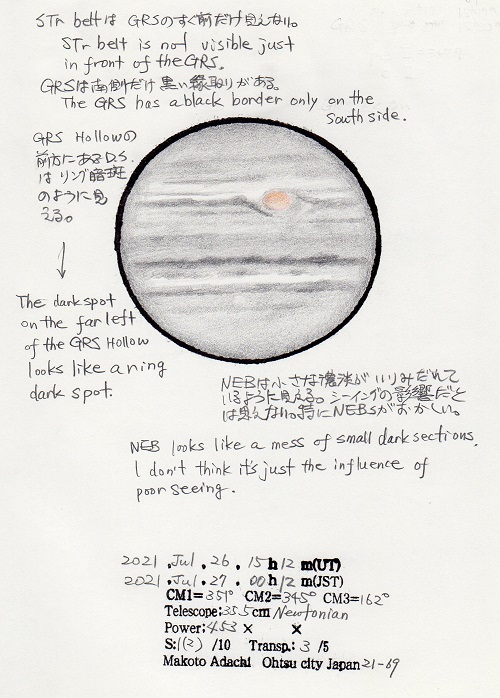 STr beltは GRSのすぐ前だけ見えない。
STr belt is not visible just
in front of the GRS.
GRSは南側だけ黒い縁取りがある。
The GRS has a black border only on the
South side.
GRS Hollowの
前方にあるD.S.
はリング暗斑
のように見
える。
The dark spot
on the far left
of the GRS Hollow
looks like a ring
dark spot.
NEBは小さな濃淡がいりみだれて
いるように見える。シーイングの影響だと
は思えない。特にNEBsがおかしい。
NEB looks like a mess of small dark sections.
I don't think it's just the influence of
poor seeing.
2021 .Jul .26 . 15 h 12 m(UT)
2021 .Jul .27 . 00 h 12 m(JST)
CM1=351° CM2=345° CM3=162°
Telescope:35.5cm Newtonian
Power:453 × ×
S:1(2) /10 Transp.: 3 /5
Makoto Adachi Ohtsu city Japan 21-69